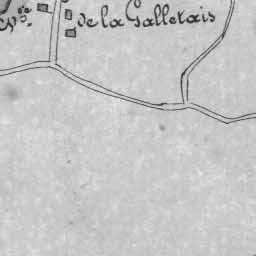 de la Galletais